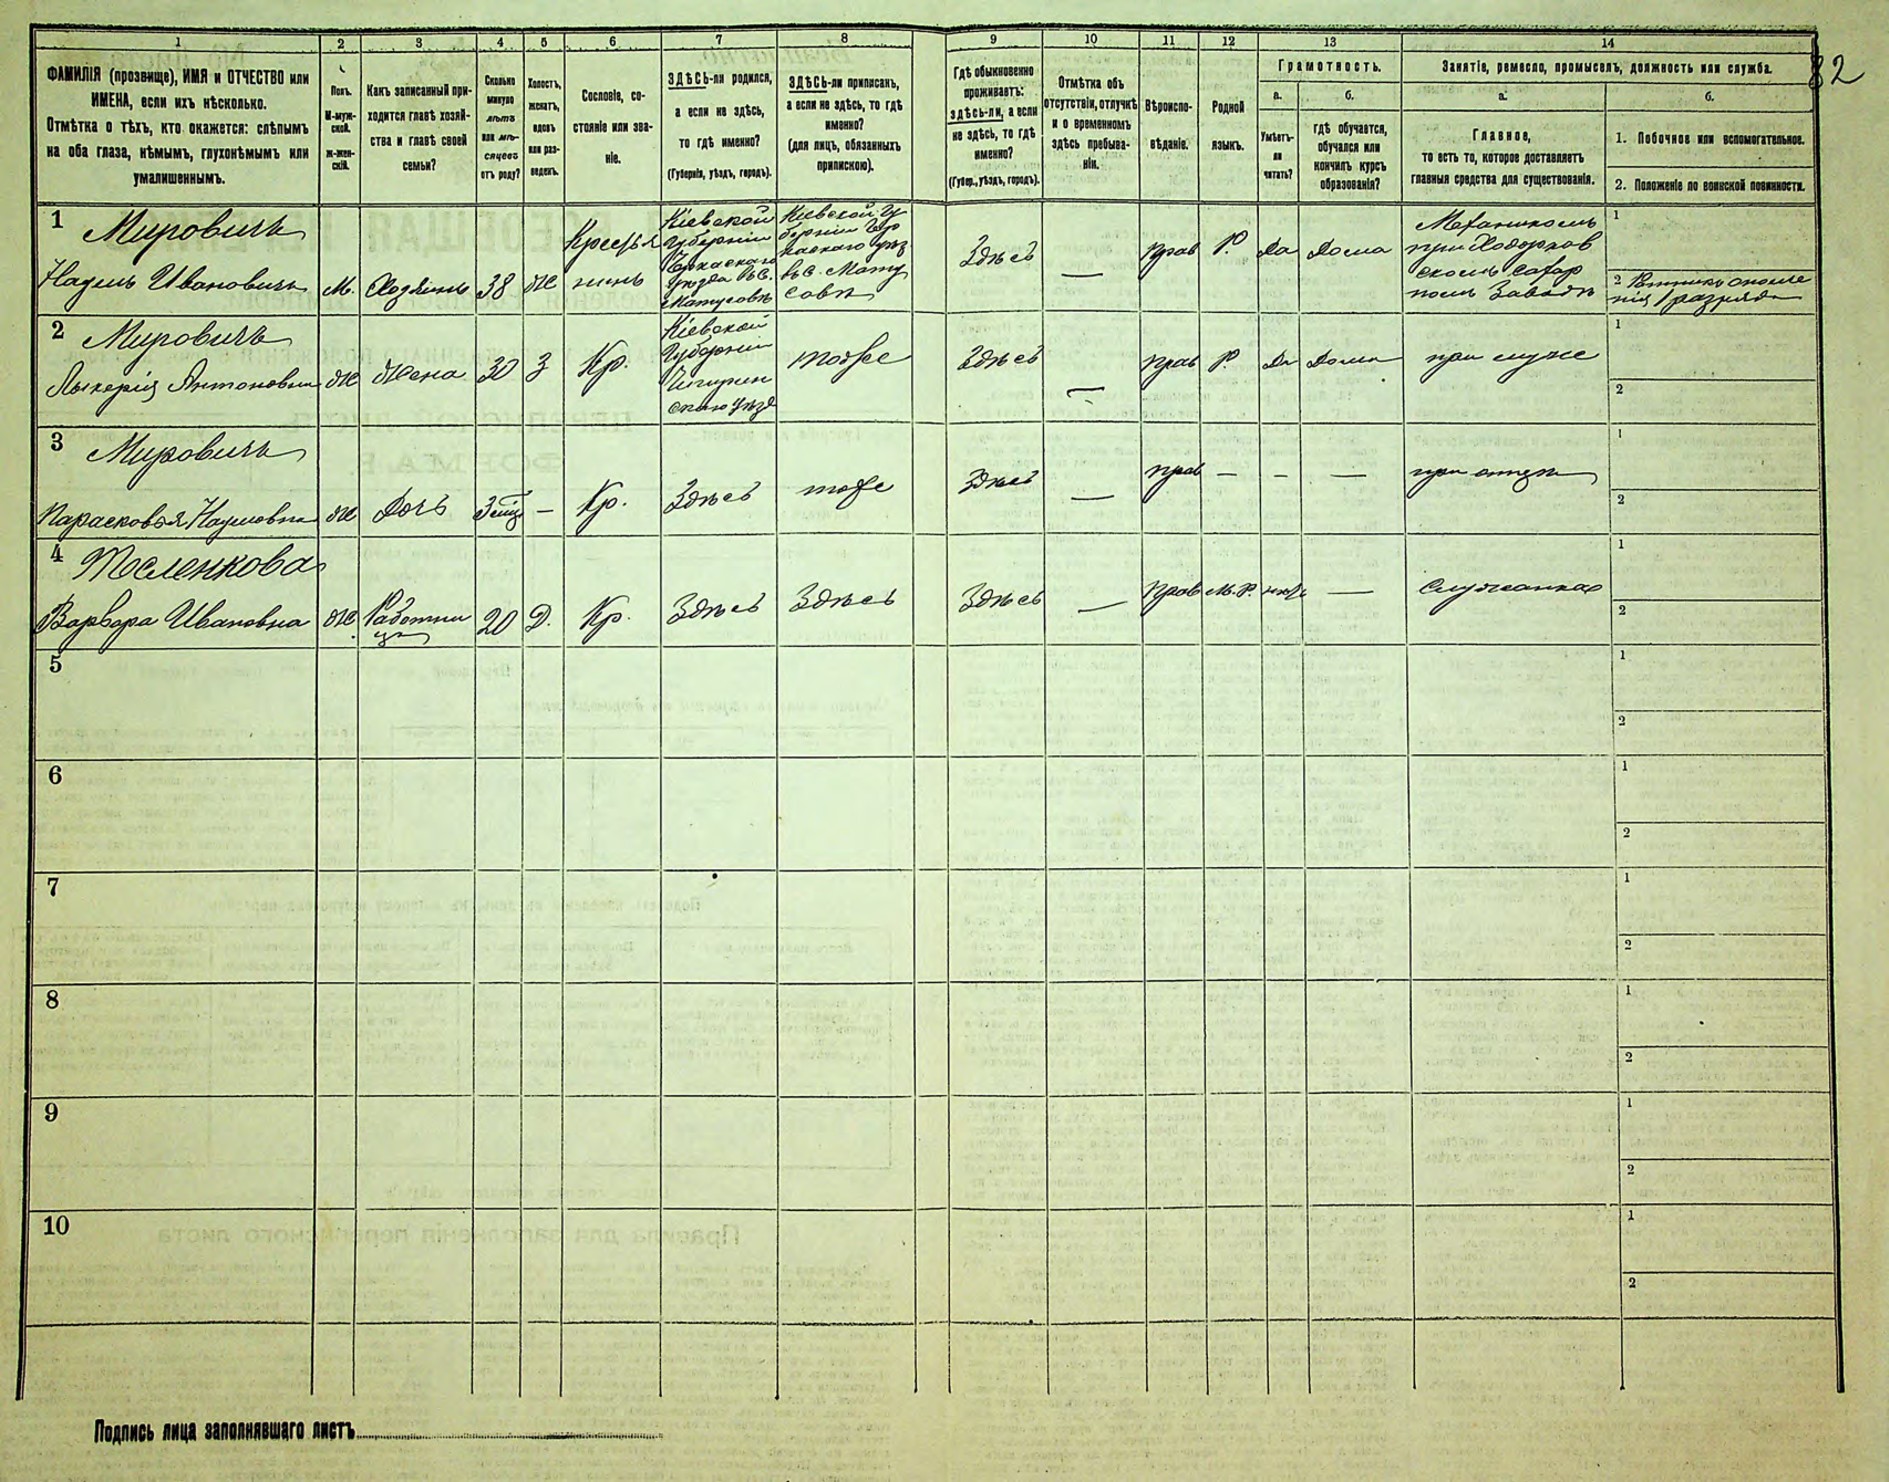 82
1 2 3 4 5 6 7 8 9 10 11 12 13 14
ФАМИЛІЯ (прозвище), ИМЯ и ОТЧЕСТВО или
ИМЕНА, если ихъ нѣсколько.
Отмѣтка о тѣхъ, кто окажется: слѣпымъ
на оба глаза, нѣмымъ, глухонѣмымъ или
умалишеннымъ.
Полъ.
М-муж-
ской.
ж-жен-
скій.
Какъ записанный при-
ходится главѣ хозяй-
ства и главѣ своей
семьи?
Сколько
минуло
лѣтъ
или мѣ-
сяцевъ
отъ роду?
Холостъ,
женатъ,
вдовъ
или раз-
веденъ.
Сословіе, со-
стояніе или зва-
ніе.
ЗДѢСЬ-ли родился,
а если не здѣсь,
то гдѣ именно?
(Губернія, уѣздъ, городъ).
ЗДѢСЬ-ли приписанъ,
а если не здѣсь, то гдѣ
именно?
(для лицъ, обязанныхъ
припискою).
Гдѣ обыкновенно
проживаетъ:
здѣсь-ли, а если
не здѣсь, то гдѣ
именно?
(Губер., уѣздъ, городъ).
Отмѣтка объ
отсутствіи, отлучкѣ
и о временномъ
здѣсь пребыва-
ніи.
Вѣроиспо-
вѣданіе.
Родной
языкъ.
Грамотность.
а.
Умѣетъ-
ли
читать?
б.
гдѣ обучается,
обучался или
кончилъ курсъ
образованія?
Занятіе, ремесло, промыселъ, должность или служба.
а.
Главное,
то есть то, которое доставляетъ
главныя средства для существованія.
б.
1. Побочное или вспомогательное.
2. Положеніе по воинской повинности.
1 Мировичъ
Наумъ Ивановичъ
М.
Хозяинъ
38
Ж
Крестья
нинъ
Кіевской
Губерніи
Черкаскаго
Уѣзда въ с.
Матусовѣ
Кіевской Гу
берніи Чер
каскаго уѣз
въ с. Мату
совѣ
Здѣсь
—
Прав
Р.
Да
Дома
Механикомъ
при Ходорков
скомъ Сахар
номъ Заводѣ
1
2 Ратникъ ополче
нія 1 разряда
2 Мировичъ
Лыкерія Антоновна
Ж
Жена
30
З
Кр.
Кіевской
Губерніи
Чигирин
скаго Уѣзд
тоже
Здѣсь
—
Прав
Р.
Да
Дома
при мужѣ
1
2
3 Мировичъ
Парасковія Наумовна
Ж
Дочь
—
Кр.
Здѣсь
тоже
Здѣсь
—
Прав
—
—
—
при отцѣ
1
2
4 Тесленкова
Варвара Ивановна
Ж
Работни
ца
20
Д.
Кр.
Здѣсь
Здѣсь
Здѣсь
—
Прав
М. Р.
нѣтъ
—
Служанка
1
2
5
1
2
6
1
2
7
1
2
8
1
2
9
1
2
10
1
2
Подпись лица заполнявшаго листъ